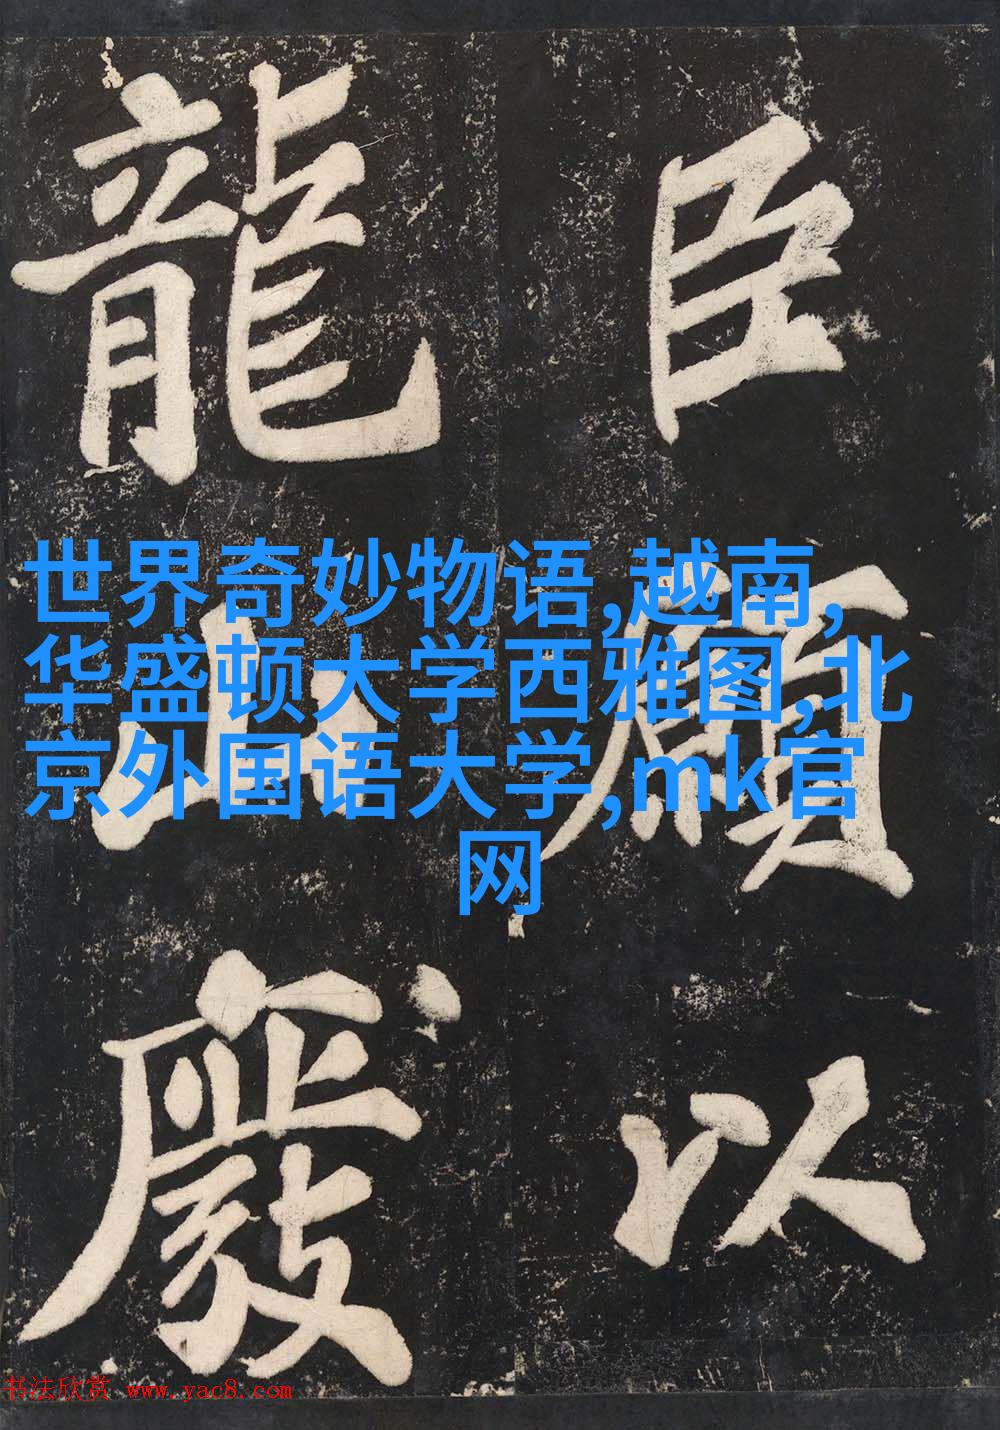 臣願以
龍山嚴
世界奇妙物语,越南,
华盛顿大学西雅图,北
京外国语大学,mk官
网
书法欣赏 www.yac8.com